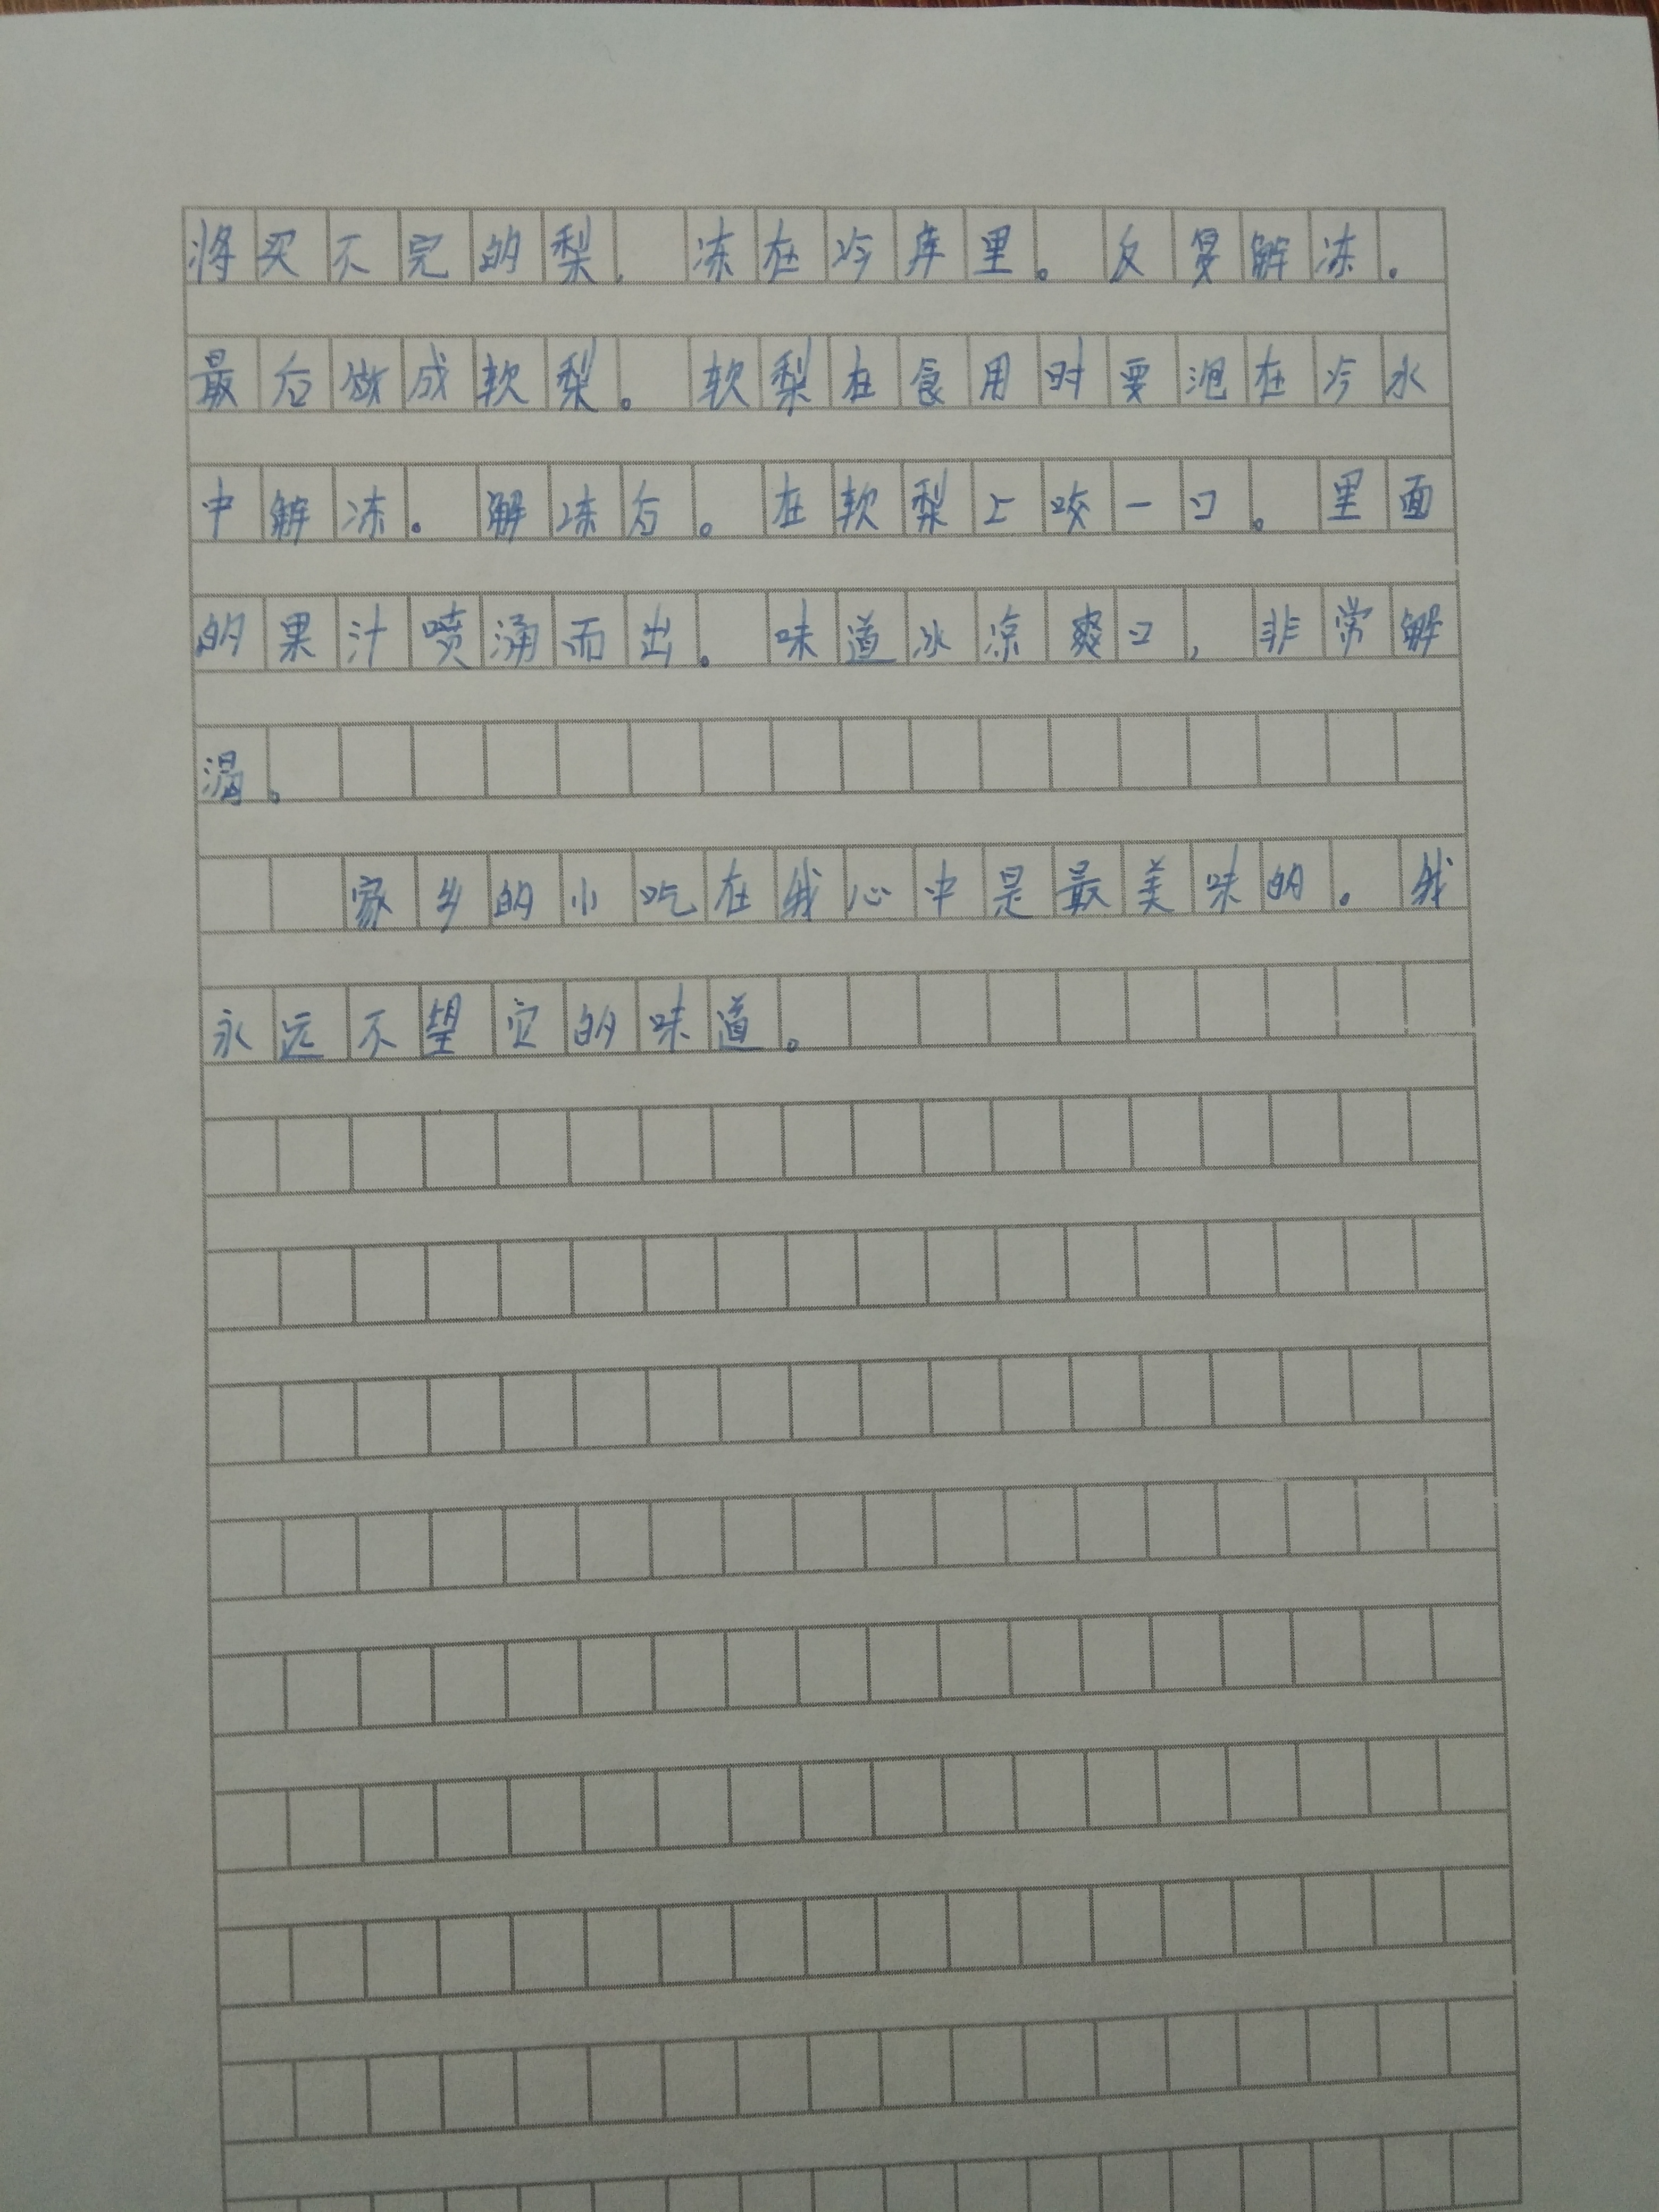 将买不完的梨。冻在冷库里。反复解冻。
最后做成软梨。软梨在食用时要泡在冷水
中解冻。解冻后。在软梨上咬一口。里面
的果汁喷涌而出。味道冰凉爽口，非常解
渴。
家乡的小吃在我心中是最美味的。我
永远不望它的味道。